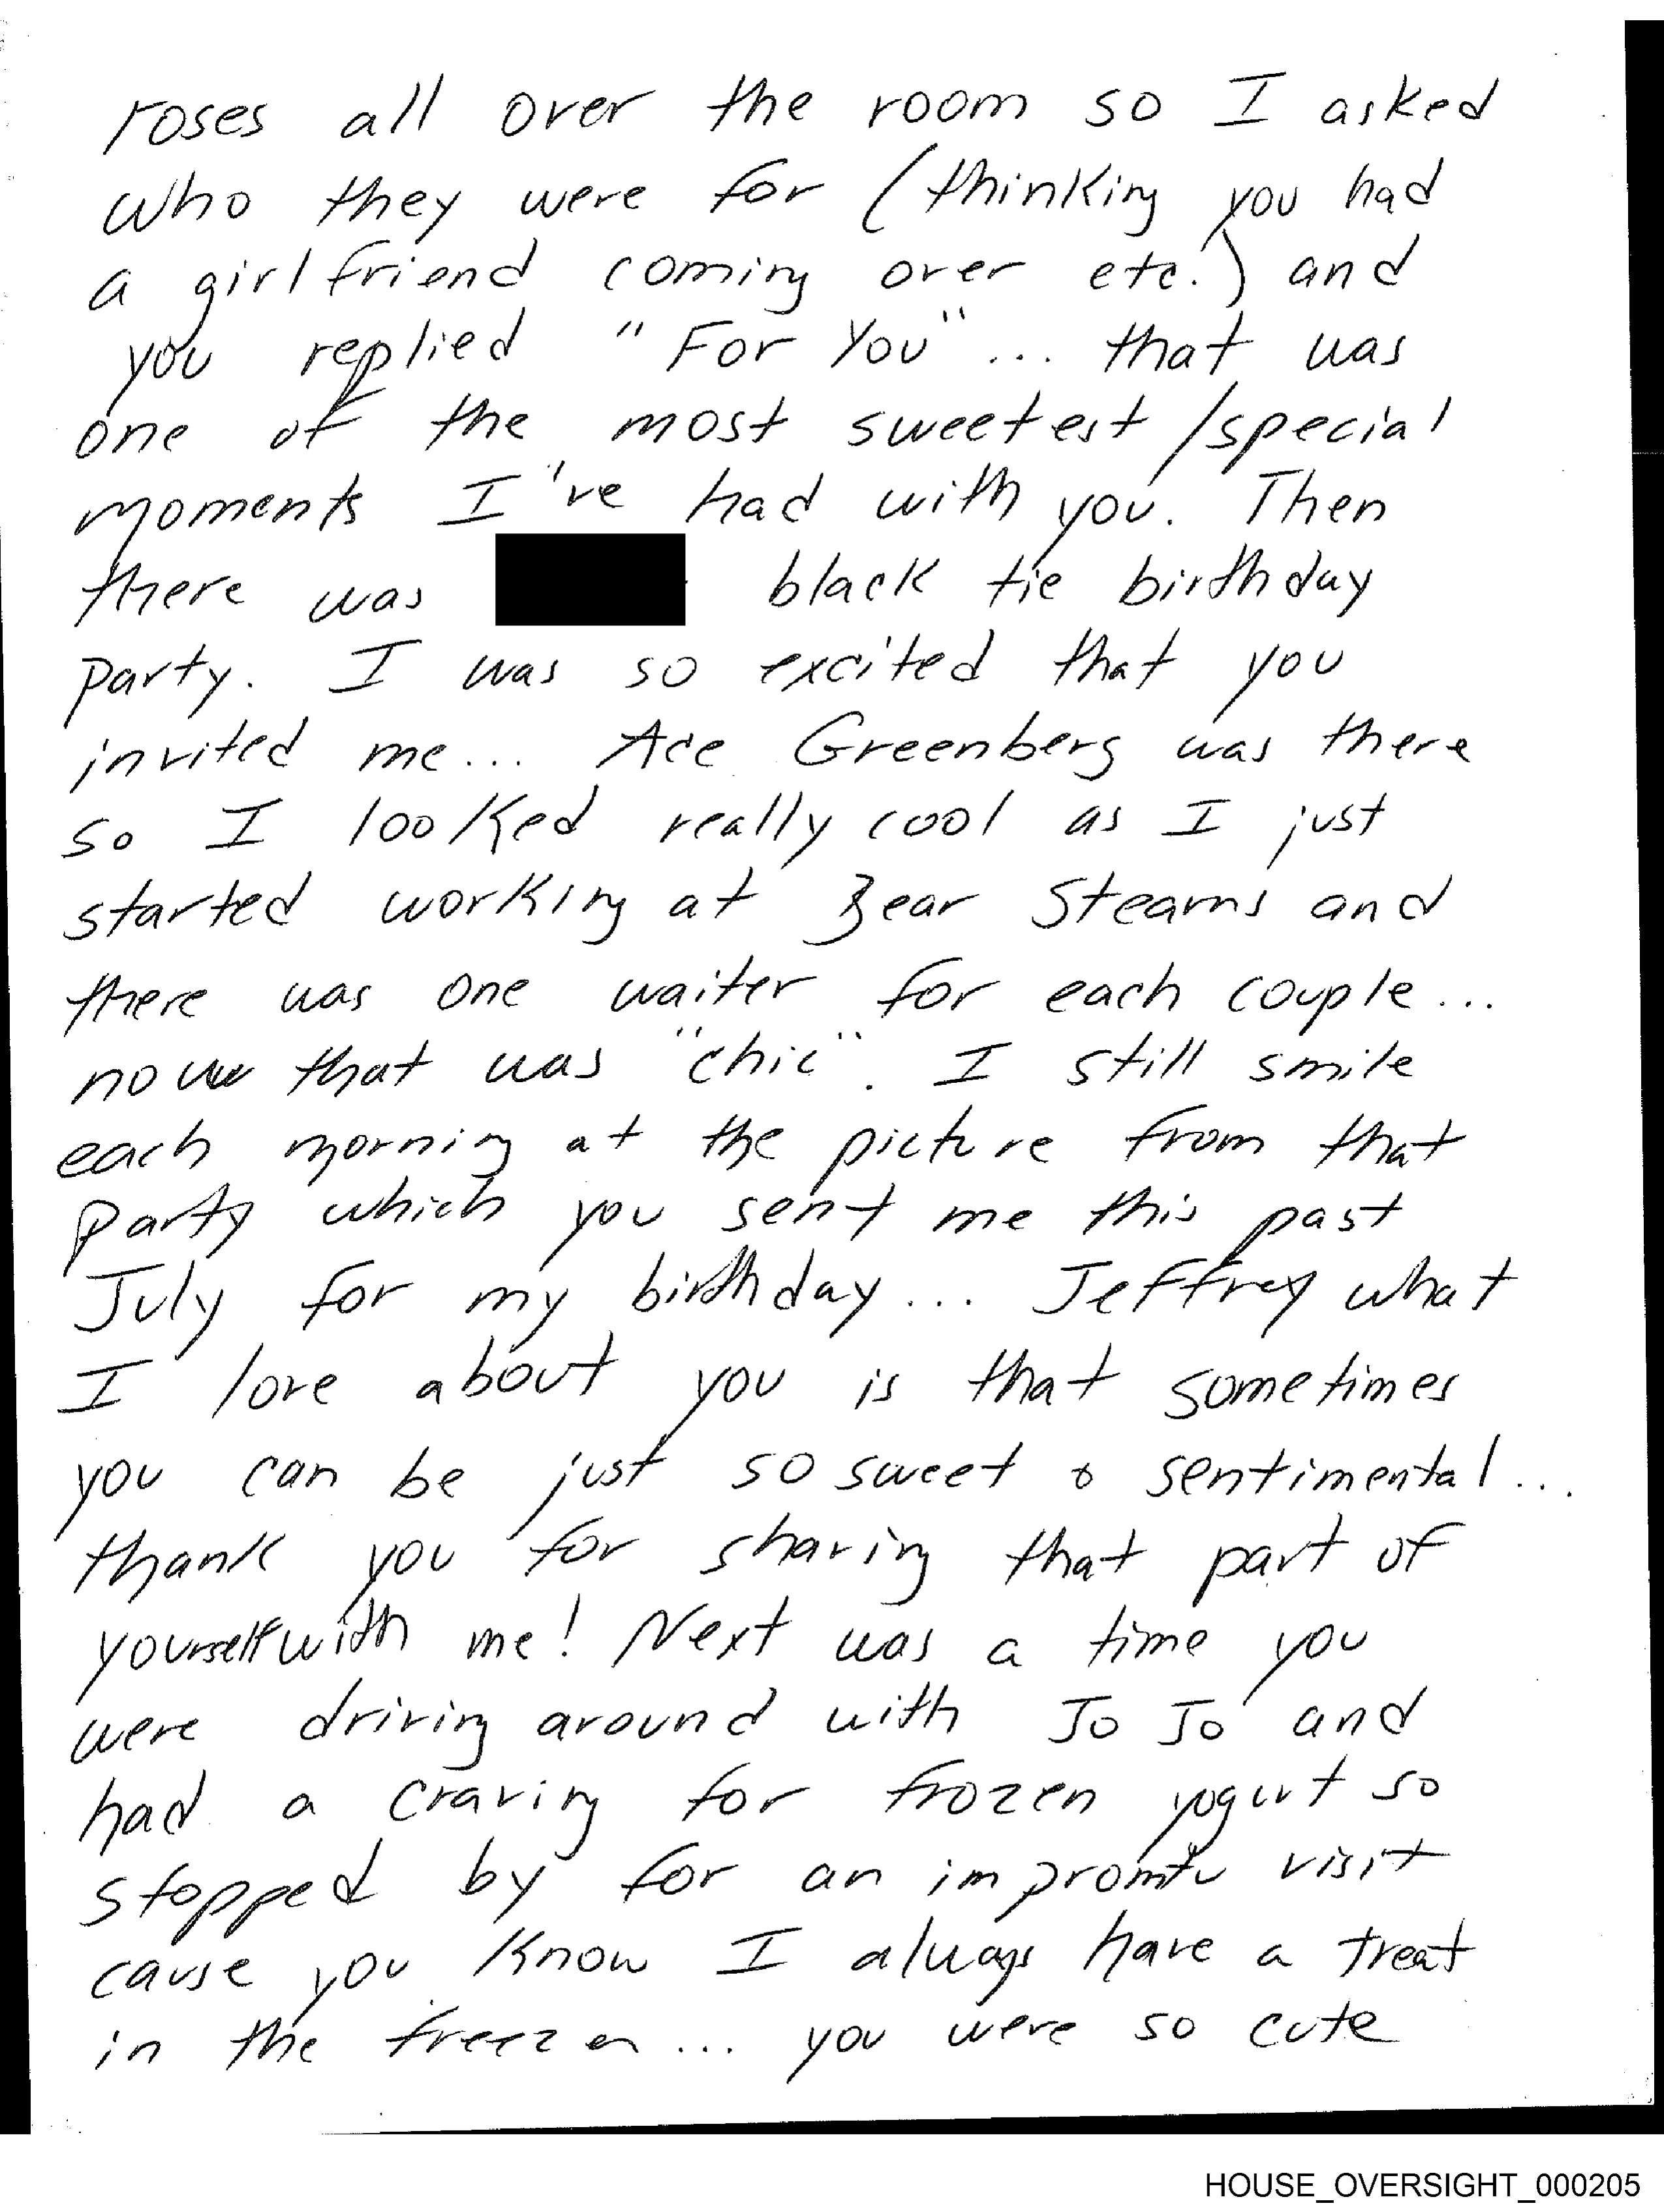 roses all over the room so I asked
who they were for (thinking you had
a girlfriend coming over etc.) and
you replied "For You"... that was
one of the most sweetest/special
moments I've had with you. Then
there was black tie birthday
party. I was so excited that you
invited me... Ace Greenberg was there
so I looked really cool as I just
started working at Bear Stearns and
there was one waiter for each couple...
now that was "chic". I still smile
each morning at the picture from that
party which you sent me this past
July for my birthday... Jeffrey what
I love about you is that sometimes
you can be just so sweet & sentimental...
thank you for sharing that part of
yourself with me! Next was a time you
were driving around with Jo Jo and
had a craving for frozen yogurt so
stopped by for an impromtu visit
cause you know I always have a treat
in the freezer... you were so cute
HOUSE_OVERSIGHT_000205